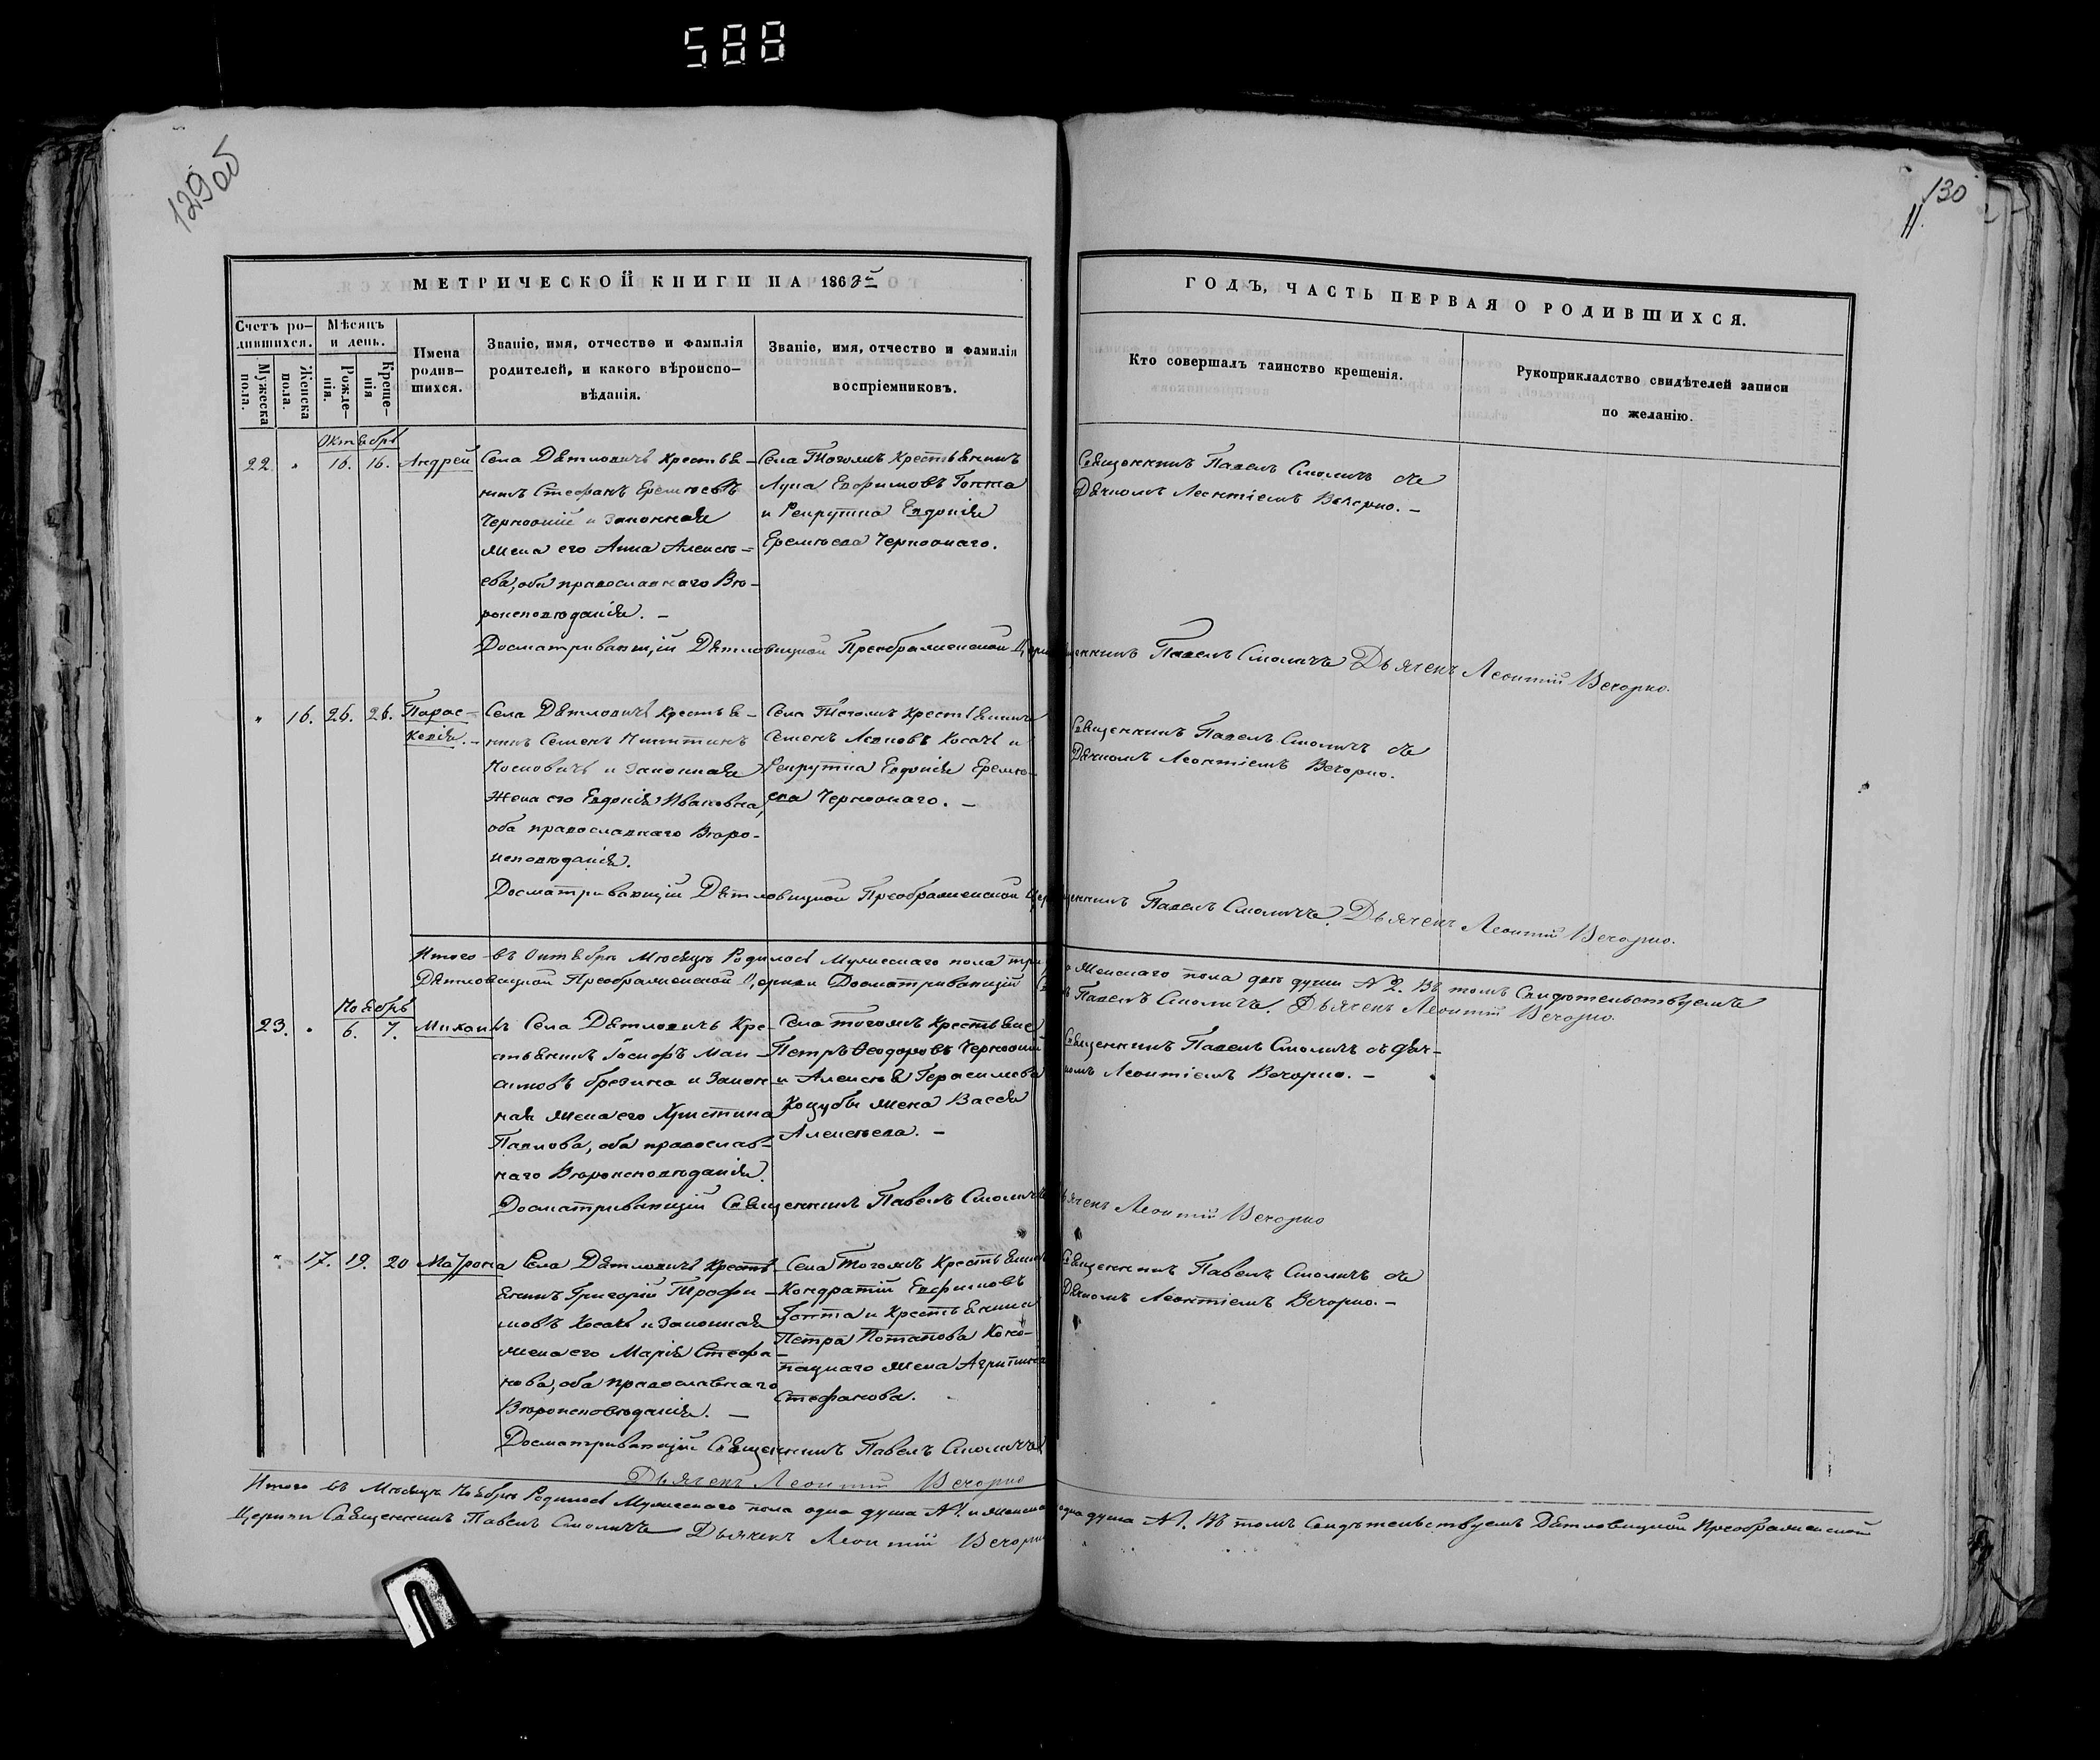 588
129 об
130
11.
МЕТРИЧЕСКОЙ КНИГИ НА 1863й
ГОДЪ, ЧАСТЬ ПЕРВАЯ О РОДИВШИХСЯ.
Счетъ ро-
дившихся.
Мужеска
пола.
Женска
пола.
Мѣсяцъ
и день.
Рожде-
нія.
Креще-
нія
Имена
родив-
шихся.
Званіе, имя, отчество и фамилія
родителей, и какого вѣроиспо-
вѣданія.
Званіе, имя, отчество и фамилія
воспріемниковъ.
Кто совершалъ таинство крещенія.
Рукоприкладство свидѣтелей записи
по желанію.
Октябрь
22. " 16. 16. Андрей
Села Дятловичъ Крестья-
нинъ Стефанъ Еремѣевъ
Черноокій и законная
жена его Анна Алексѣ-
ева, оба православнаго Вѣ-
роисповѣданія. -
Села Тогожъ Крестьянинъ
Лука Евфимовъ Гоппа
и Рекрутка Евдокія
Еремѣева Черноокаго.
Священникъ Павелъ Смоличъ съ
Дячкомъ Леонтіемъ Вечорко. -
Досматривающій Дятловицкой Преображенской Церк Священникъ Павелъ Смоличъ Дьячекъ Леонтій Вечорко.
" 16. 26. 26. Парас-
кевія. -
Села Дятловичъ Крестья-
нинъ Семенъ Никитинъ
Носковичъ и законная
Жена его Евдокія Ивановна,
оба православнаго Вѣро-
исповѣданія.
Села Тогожъ Крестьянинъ
Семенъ Леоновъ Косачъ и
Рекрутка Евдокія Еремѣ-
ева Черноокаго. -
Священникъ Павелъ Смоличъ съ
Дячкомъ Леонтіемъ Вечорко.
Досматривающій Дятловицкой Преображенской Цер Священникъ Павелъ Смоличъ. Дьячекъ Леонтій Вечорко.
Итого въ Октябрѣ Мѣсяцѣ Родилось Мужескаго пола три Женскаго пола двѣ души № 2. Въ томъ Свидѣтельствуемъ
Дятловицкой Преображенской Церкви Досматривающій Павелъ Смоличъ. Дьячекъ Леонтій Вечорко.
Ноябрь
23. " 6. 7. Михаилъ
Села Дятловичъ Кре-
стьянинъ Іосифъ Мак-
симовъ Брезина и закон-
ная жена его Христина
Павлова, оба православ-
наго Вѣроисповѣданія.
Села тогожъ Крестьяне
Петръ Ѳеодоровъ Черноокій
и Алексѣя Герасимова
Коцубы жена Васса
Алексѣева. -
Священникъ Павелъ Смоличъ съ Дяч-
комъ Леонтіемъ Вечорко. -
Досматривающій Священникъ Павелъ Смоличъ Дьячекъ Леонтій Вечорко
" 17. 19. 20 Матрона
Села Дятловичъ Кресть-
янинъ Григорій Трофи-
мовъ Косачъ и законная
жена его Марія Стефа-
нова, оба православнаго
Вѣроисповѣданія. -
Села Тогожъ Крестьянинъ
Кондратій Евфимовъ
Гоппа и Крестьянина
Петра Потапова Коно-
пацкаго жена Агрипина
Стефанова.
Священникъ Павелъ Смоличъ съ
Дячкомъ Леонтіемъ Вечорко. -
Досматривающій Священникъ Павелъ Смоличъ
Дьячекъ Леонтій Вечорко
Итого въ Мѣсяцѣ Ноябрѣ Родилось Мужескаго пола одна душа № 1. и женска одна душа № 1. Въ томъ Свидѣтельствуемъ Дятловицкой Преображенской
Церкви Священникъ Павелъ Смоличъ Дьячекъ Леонтій Вечорко